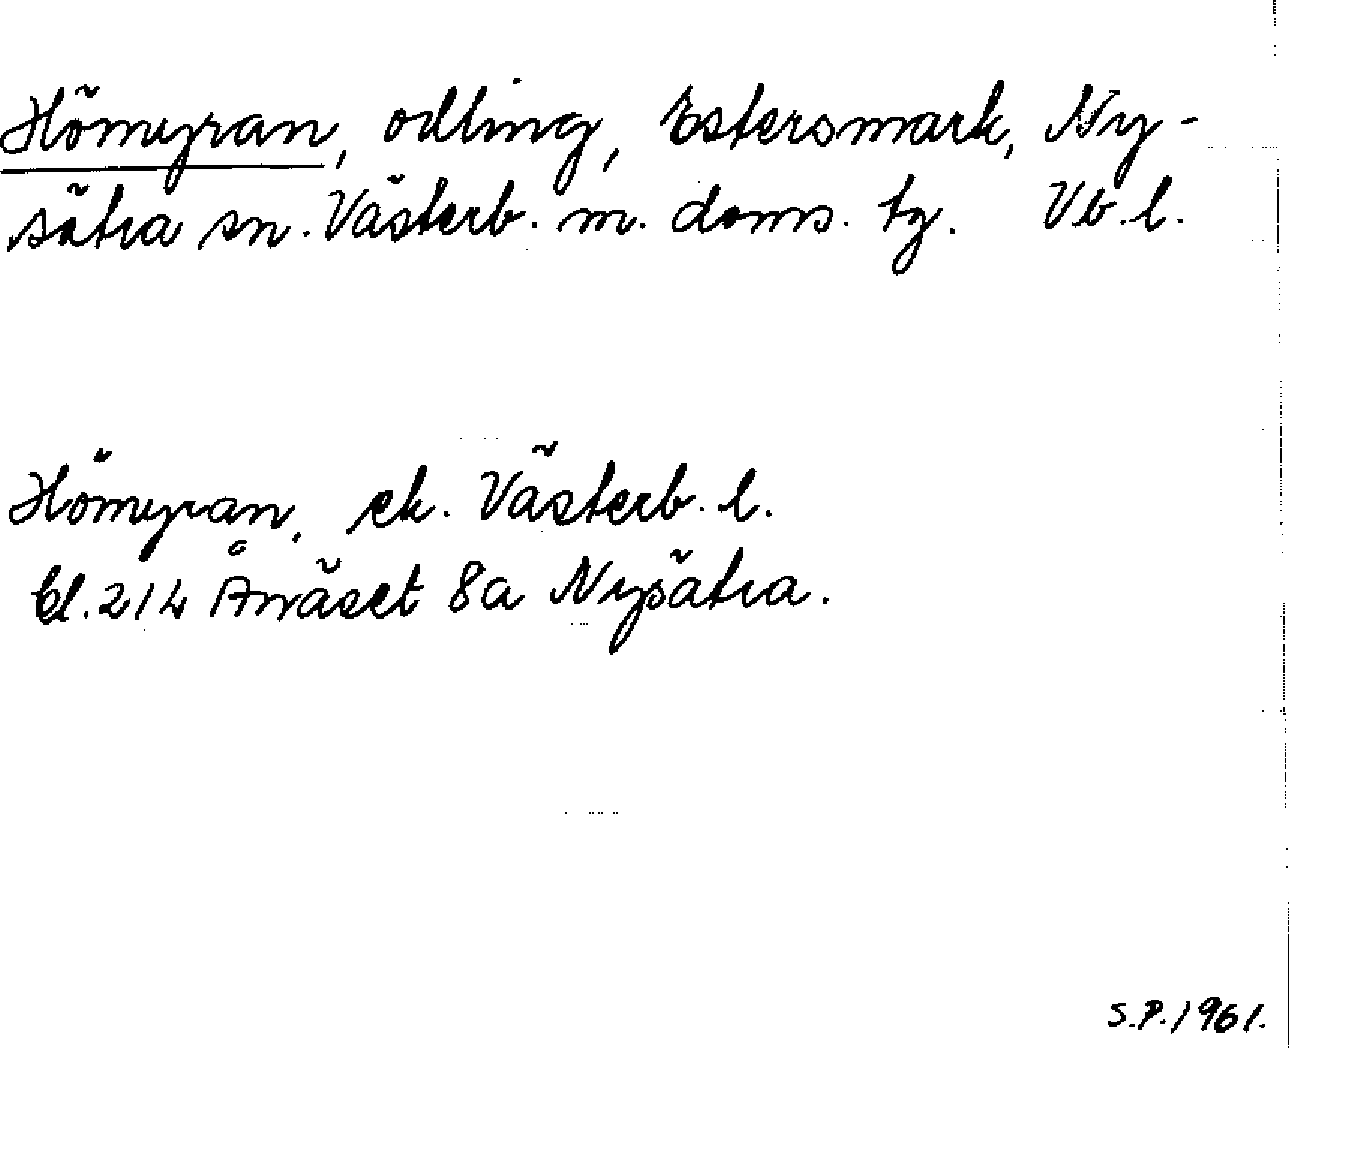 Hömyran, odling, Estersmark, Ny-
sätra sn. Västerb. m. doms. tg. Vb.l.
Hömyran, ek. Västerb. l.
bl. 214 Ånäset 8a Nysätra.
S.P. 1961.